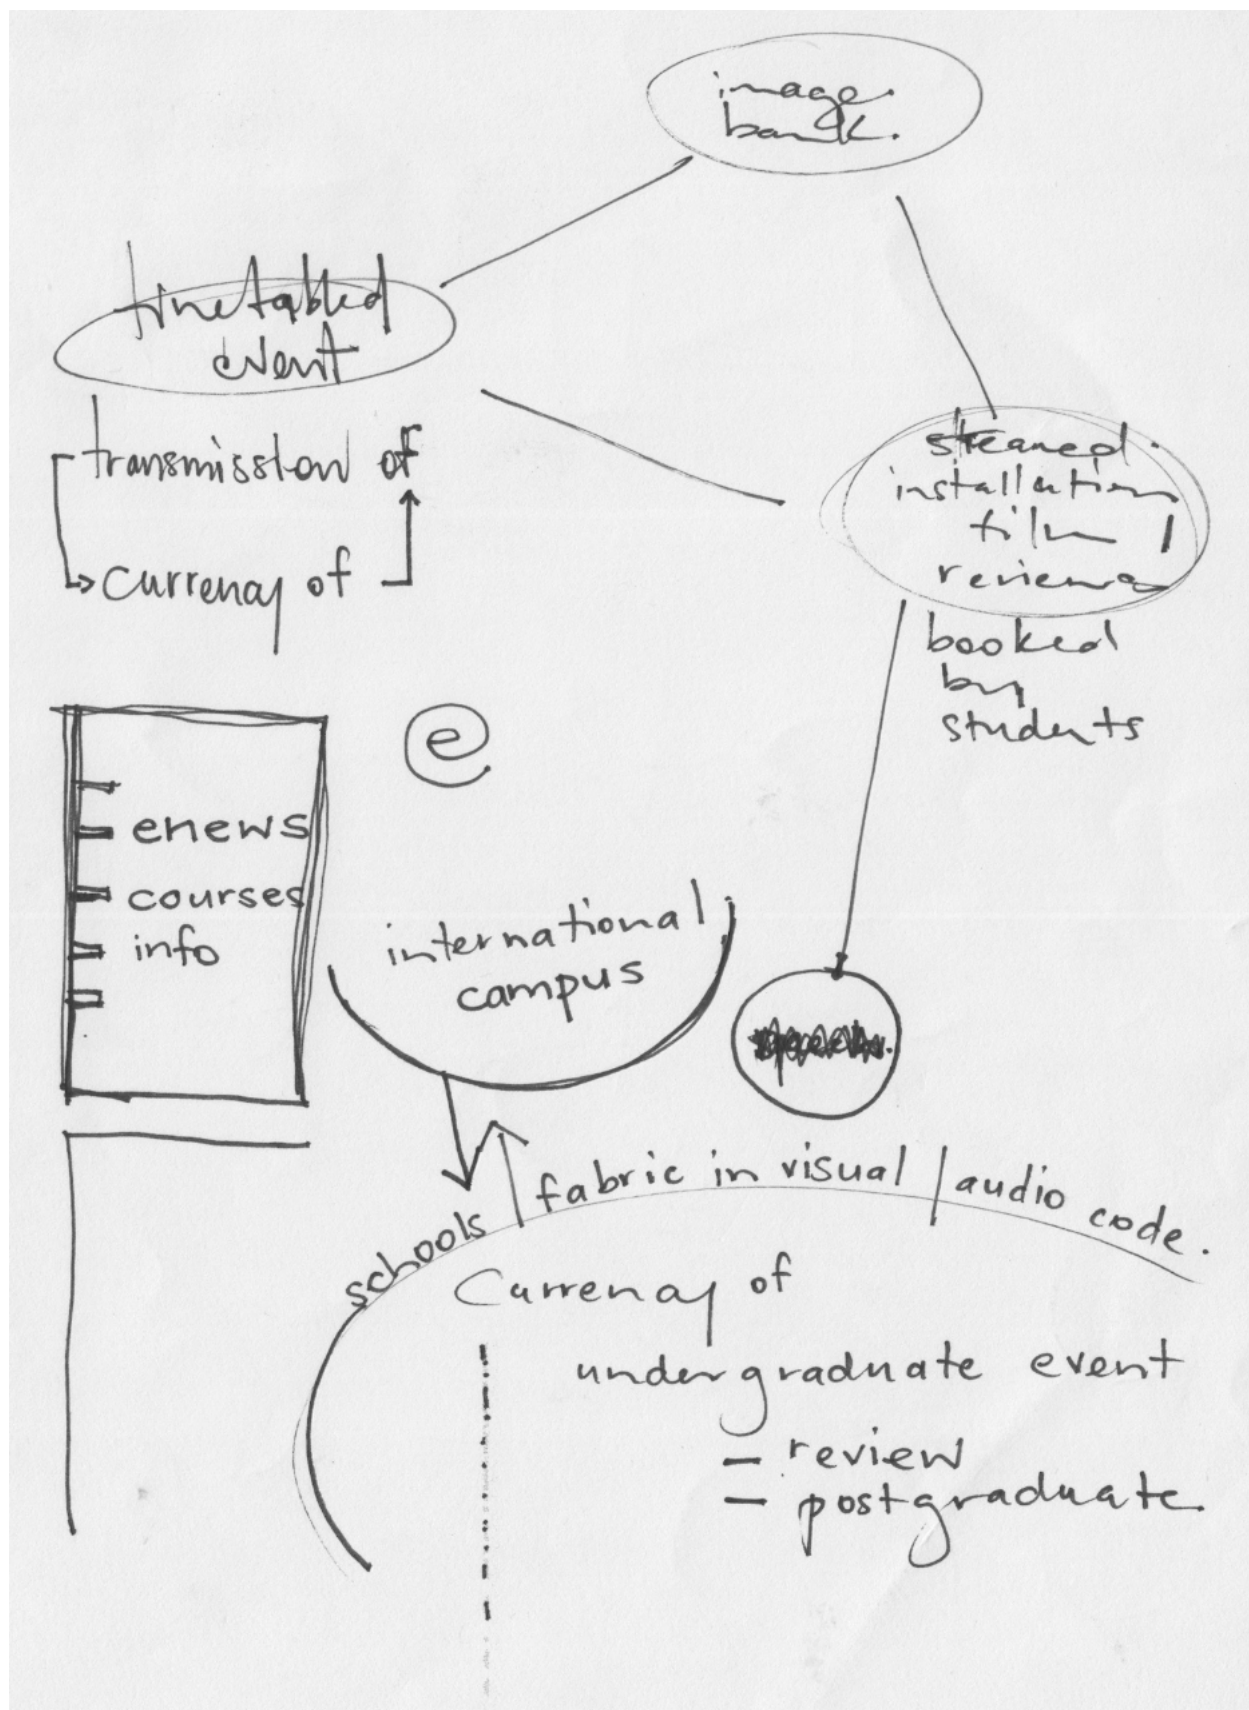 image
bank.
timetabled
event
transmission of
currency of
streamed
installation
film /
reviews
booked
by
students
e
enews
courses
info
international
campus
schools
fabric in visual / audio code.
Currency of
undergraduate event
- review
- postgraduate